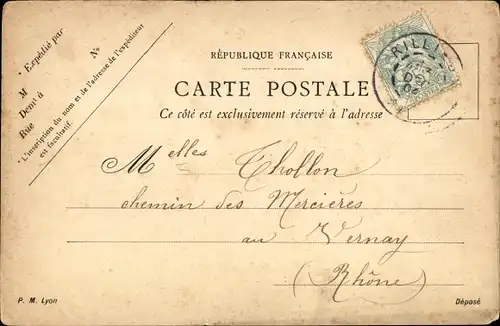 Expédié par
M No
Demt à
Rue
*L'inscription du nom et de l'adresse de l'expéditeur
est facultatif.
RÉPUBLIQUE FRANÇAISE
CARTE POSTALE
Ce côté est exclusivement réservé à l'adresse
RILLI
Melles Thollon
chemin des Mercières
au Vernay
(Rhône)
P. M. Lyon
Déposé